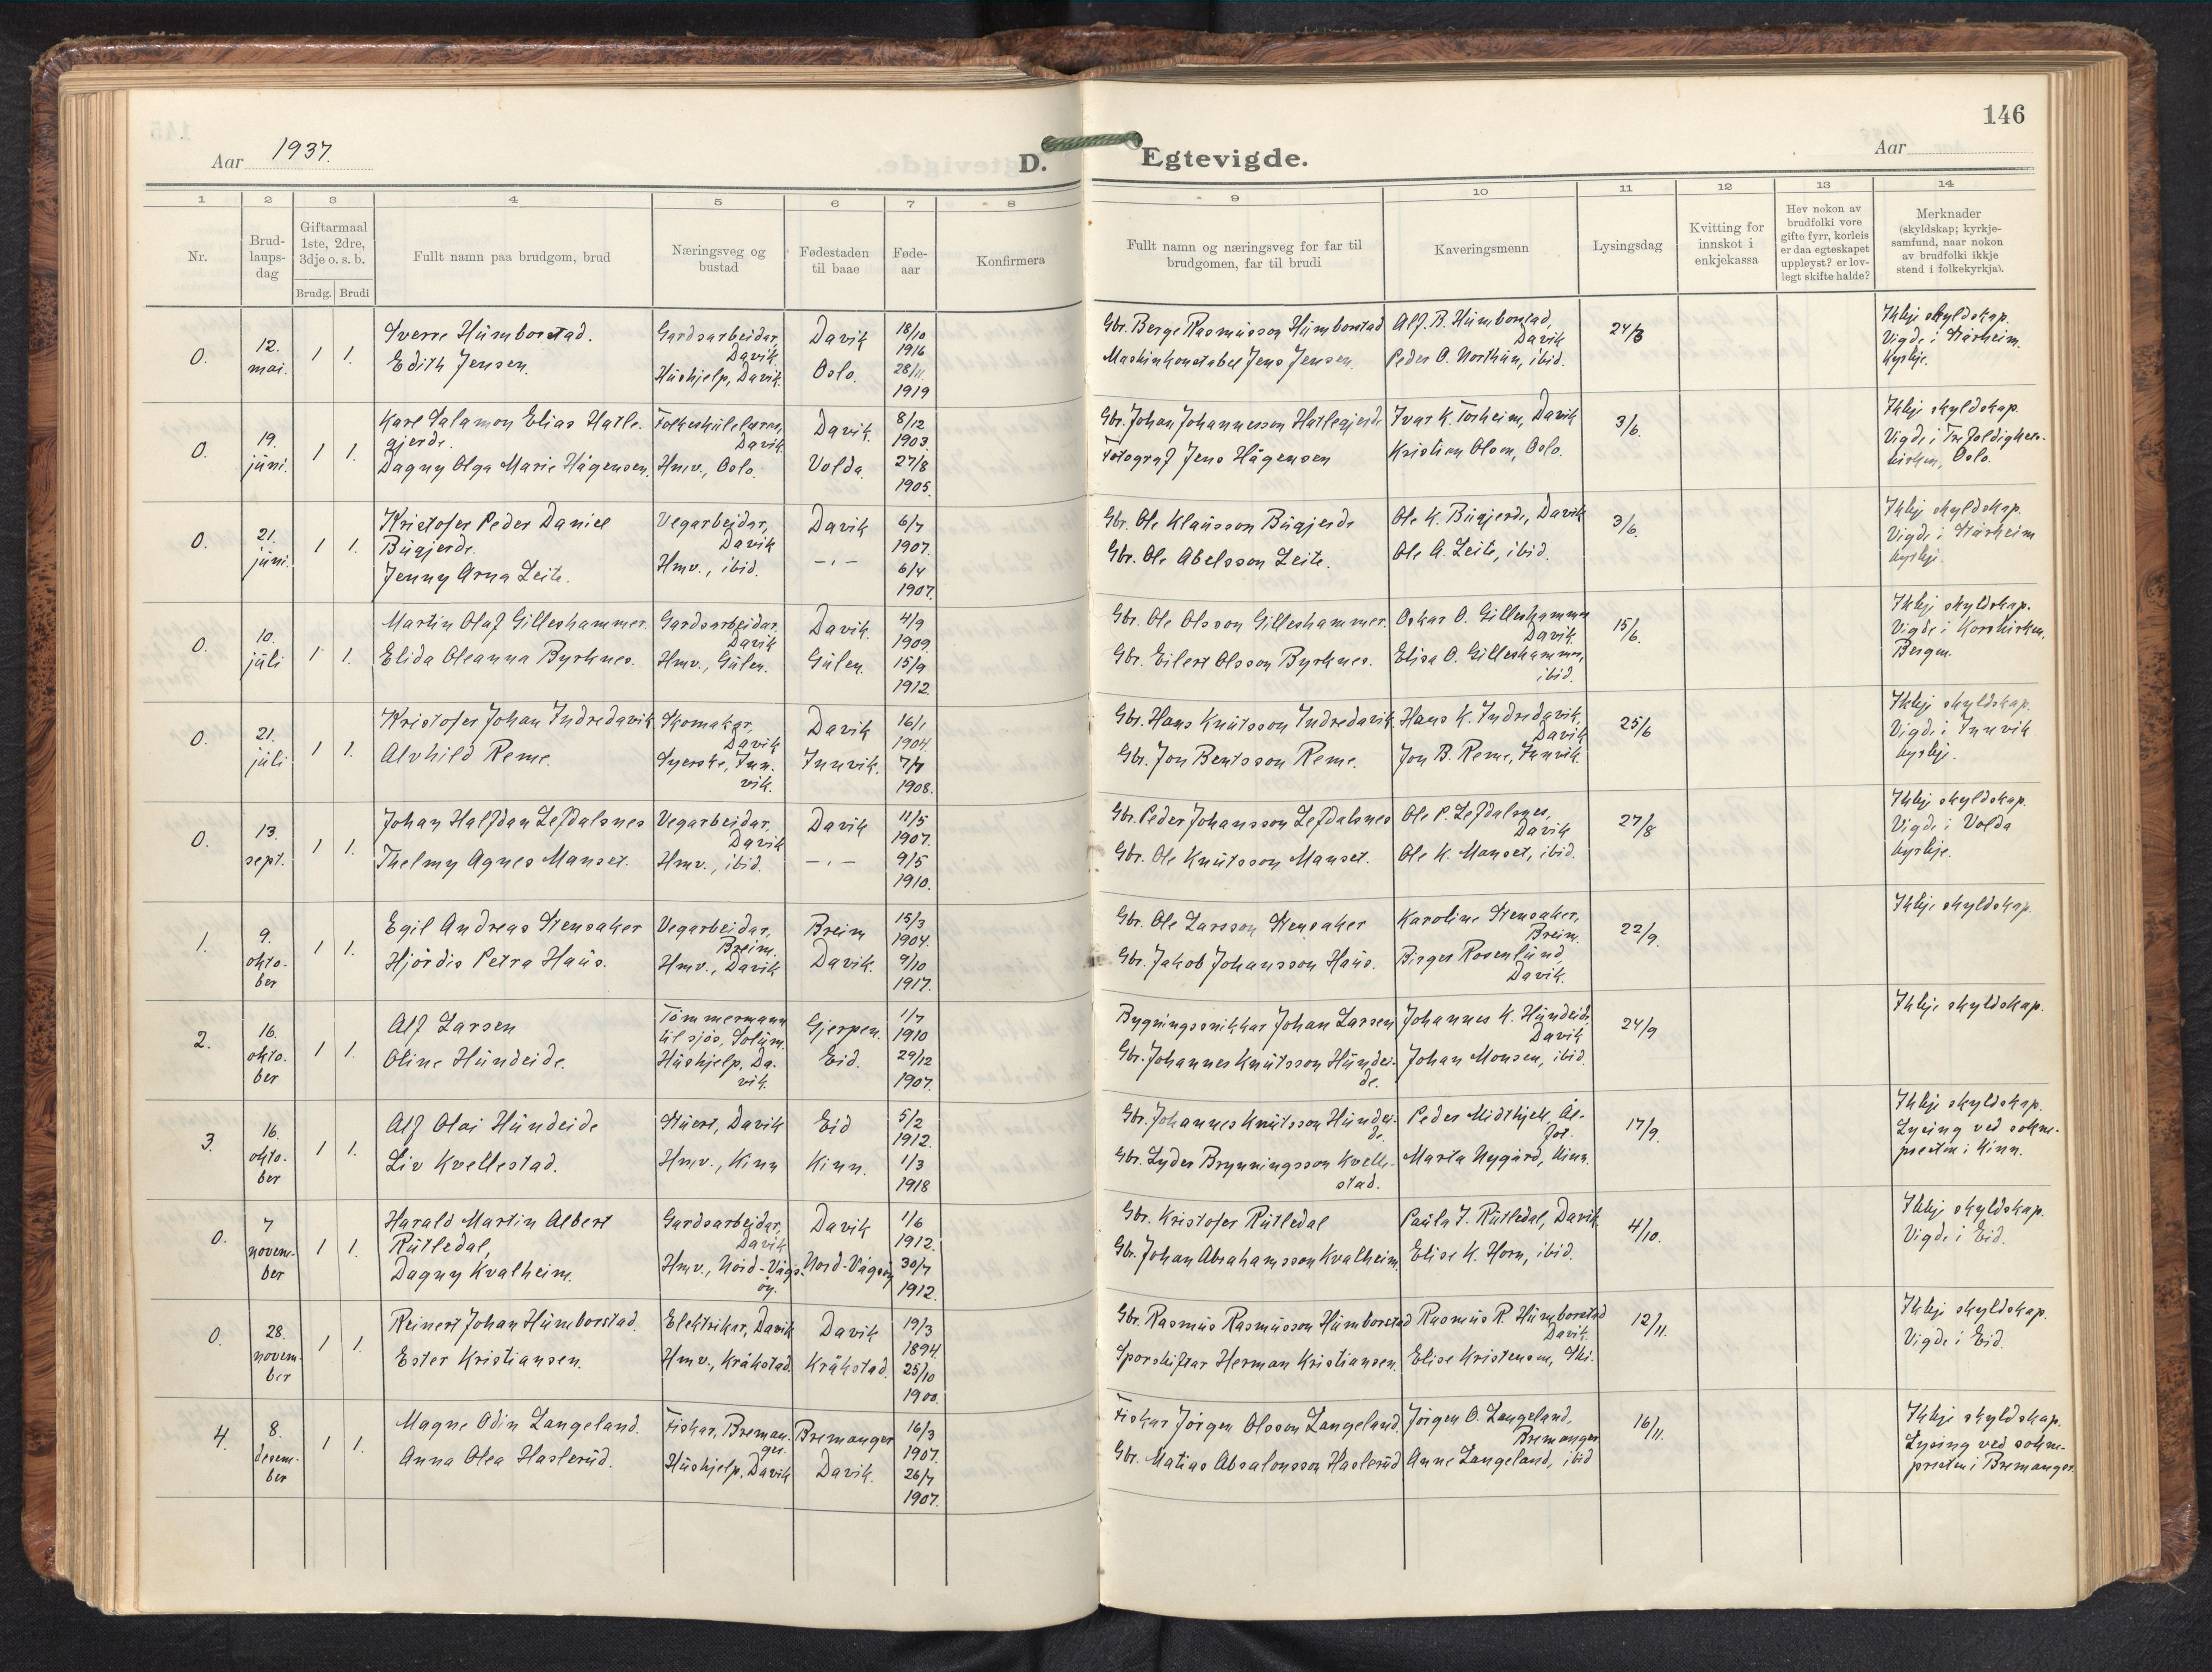 146
Aar 1937.
D. Egtevigde.
Aar
1 2 3 4 5 6 7 8 9 10 11 12 13 14
Nr.
Brud-
laups-
dag
Giftarmaal
1ste, 2dre,
3dje o. s. b.
Brudg. Brudi
Fullt namn paa brudgom, brud
Næringsveg og
bustad
Fødestaden
til baae
Føde-
aar
Konfirmera
Fullt namn og næringsveg for far til
brudgomen, far til brudi
Kaveringsmenn
Lysingsdag
Kvitting for
innskot i
enkjekassa
Hev nokon av
brudfolki vore
gifte fyrr, korleis
er daa egteskapet
uppløyst? er lov-
legt skifte halde?
Merknader
(skyldskap; kyrkje-
samfund, naar nokon
av brudfolki ikkje
stend i folkekyrkja).
0.
12.
mai.
1 1.
Sverre Humborstad.
Edith Jensen.
Gardsarbeidar,
Davik
Hushjelp, Davik.
Davik
Oslo.
18/10
1916
28/11
1919
Gbr. Berge Rasmusson Humborstad
Maskinkonstabel Jens Jensen.
Alf. B. Humborstad,
Davik
Peder O. Northun, ibid.
24/3
Ikkje skyldskap.
Vigde i Stårheim
kyrkje.
0.
19.
juni.
1 1.
Karl Salamon Elias Hatle-
gjerde.
Dagny Olga Marie Hågensen.
Folkeskulelærar,
Davik.
Hmv., Oslo.
Davik.
Volda.
8/12
1903.
27/8
1905.
Gbr. Johan Johannesson Hatlegjerde
Fotograf Jens Hågensen
Ivar K. Torheim, Davik
Kristian Olsen, Oslo.
3/6.
Ikkje skyldskap.
Vigde i Trefoldighets-
kirken, Oslo.
0.
21.
juni.
1 1.
Kristofer Peder Daniel
Bugjerde.
Jenny Arna Leite.
Vegarbeidar,
Davik
Hmv., ibid.
Davik
- . -
6/7
1907.
6/4
1907.
Gbr. Ole Klausson Bugjerde
Gbr. Ole Abelsson Leite.
Ole K. Bugjerde, Davik
Ole A. Leite, ibid.
3/6.
Ikkje skyldskap.
Vigde i Stårheim
kyrkje.
0.
10.
juli
1 1.
Martin Olaf Gilleshammer.
Elida Oleanna Byrknes.
Gardsarbeidar,
Davik
Hmv., Gulen.
Davik.
Gulen.
4/9
1909.
15/9
1912.
Gbr. Ole Olsson Gilleshammer.
Gbr. Eilert Olsson Byrknes.
Oskar O. Gilleshammer
Davik.
Elisa O. Gilleshammer,
ibid.
15/6.
Ikkje skyldskap.
Vigde i Korskirken,
Bergen.
0.
21.
juli
1 1.
Kristofer Johan Indredavik
Alvhild Reme.
Skomakar,
Davik
Syerske, Inn-
vik.
Davik
Innvik.
16/1
1904.
7/7
1908.
Gbr. Hans Knutsson Indredavik.
Gbr. Jon Bentsson Reme.
Hans K. Indredavik,
Davik.
Jon B. Reme, Innvik.
25/6
Ikkje skyldskap.
Vigde i Innvik
kyrkje.
0.
13.
sept.
1 1.
Johan Halfdan Lefdalsnes
Thelmy Agnes Manset.
Vegarbeidar,
Davik
Hmv., ibid.
Davik
- . -
11/5
1907.
9/5
1910.
Gbr. Peder Johansson Lefdalsnes
Gbr. Ole Knutsson Manset.
Ole P. Lefdalsnes,
Davik
Ole K. Manset, ibid.
27/8
Ikkje skyldskap.
Vigde i Volda
kyrkje.
1.
9.
okto-
ber
1 1.
Egil Andreas Stensaker
Hjördis Petra Haus.
Vegarbeidar,
Breim.
Hmv., Davik
Breim
Davik.
15/3
1904.
9/10
1917.
Gbr. Ole Larsson Stensaker
Gbr. Jakob Johansson Haus.
Karoline Stensaker,
Breim.
Birger Rosenlund,
Davik.
22/9.
Ikkje skyldskap.
2.
16.
okto-
ber
1 1.
Alf Larsen
Oline Hundeide.
Tømmermann
til sjøs, Solum.
Hushjelp, Da-
vik.
Gjerpen.
Eid.
1/7
1910
29/12
1907.
Bygningssnikkar Johan Larsen
Gbr. Johannes Knutsson Hundei-
de.
Johannes K. Hundeide,
Davik
Johan Monsen, ibid.
24/9
Ikkje skyldskap.
3.
16.
okto-
ber
1 1.
Alf Olai Hundeide
Liv Kvellestad.
Stuert, Davik
Hmv., Kinn
Eid
Kinn.
5/2
1912.
1/3
1918
Gbr. Johannes Knutsson Hundei-
de.
Gbr. Lyder Brynningsson Kvelle-
stad.
Peder Midthjell, Ål-
fot.
Marta Nygård, Kinn.
17/9.
Ikkje skyldskap.
Lysing ved sokne-
presten i Kinn.
0.
7
novem-
ber
1 1.
Harald Martin Albert
Rutledal,
Dagny Kvalheim.
Gardsarbeidar,
Davik
Hmv., Nord-Vågs-
öy.
Davik
Nord-Vågsöy
1/6
1912.
30/7
1912.
Gbr. Kristofer Rutledal
Gbr. Johan Abrahamsson Kvalheim.
Paula I. Rutledal, Davik
Elise K. Horn, ibid.
4/10.
Ikkje skyldskap.
Vigde i Eid.
0.
28.
novem-
ber
1 1.
Reinert Johan Humborstad.
Ester Kristiansen.
Elektrikar, Davik
Hmv., Kråkstad.
Davik
Kråkstad.
19/3
1894.
25/10
1900.
Gbr. Rasmus Rasmusson Humborstad
Sporskiftar Herman Kristiansen.
Rasmus R. Humborstad
Davik.
Elise Kristensen, Ski.
12/11.
Ikkje skyldskap.
Vigde i Eid
4.
8.
desem-
ber
1 1.
Magne Odin Langeland.
Anna Olea Haslerud.
Fiskar, Breman-
ger.
Hushjelp, Davik
Bremanger
Davik.
16/3
1907.
26/7
1907.
Fiskar Jörgen Olsson Langeland.
Gbr. Matias Absalonsson Haslerud
Jörgen O. Langeland,
Bremanger
Anne Langeland, ibid
16/11.
Ikkje skyldskap.
Lysing ved sokne-
presten i Bremanger.